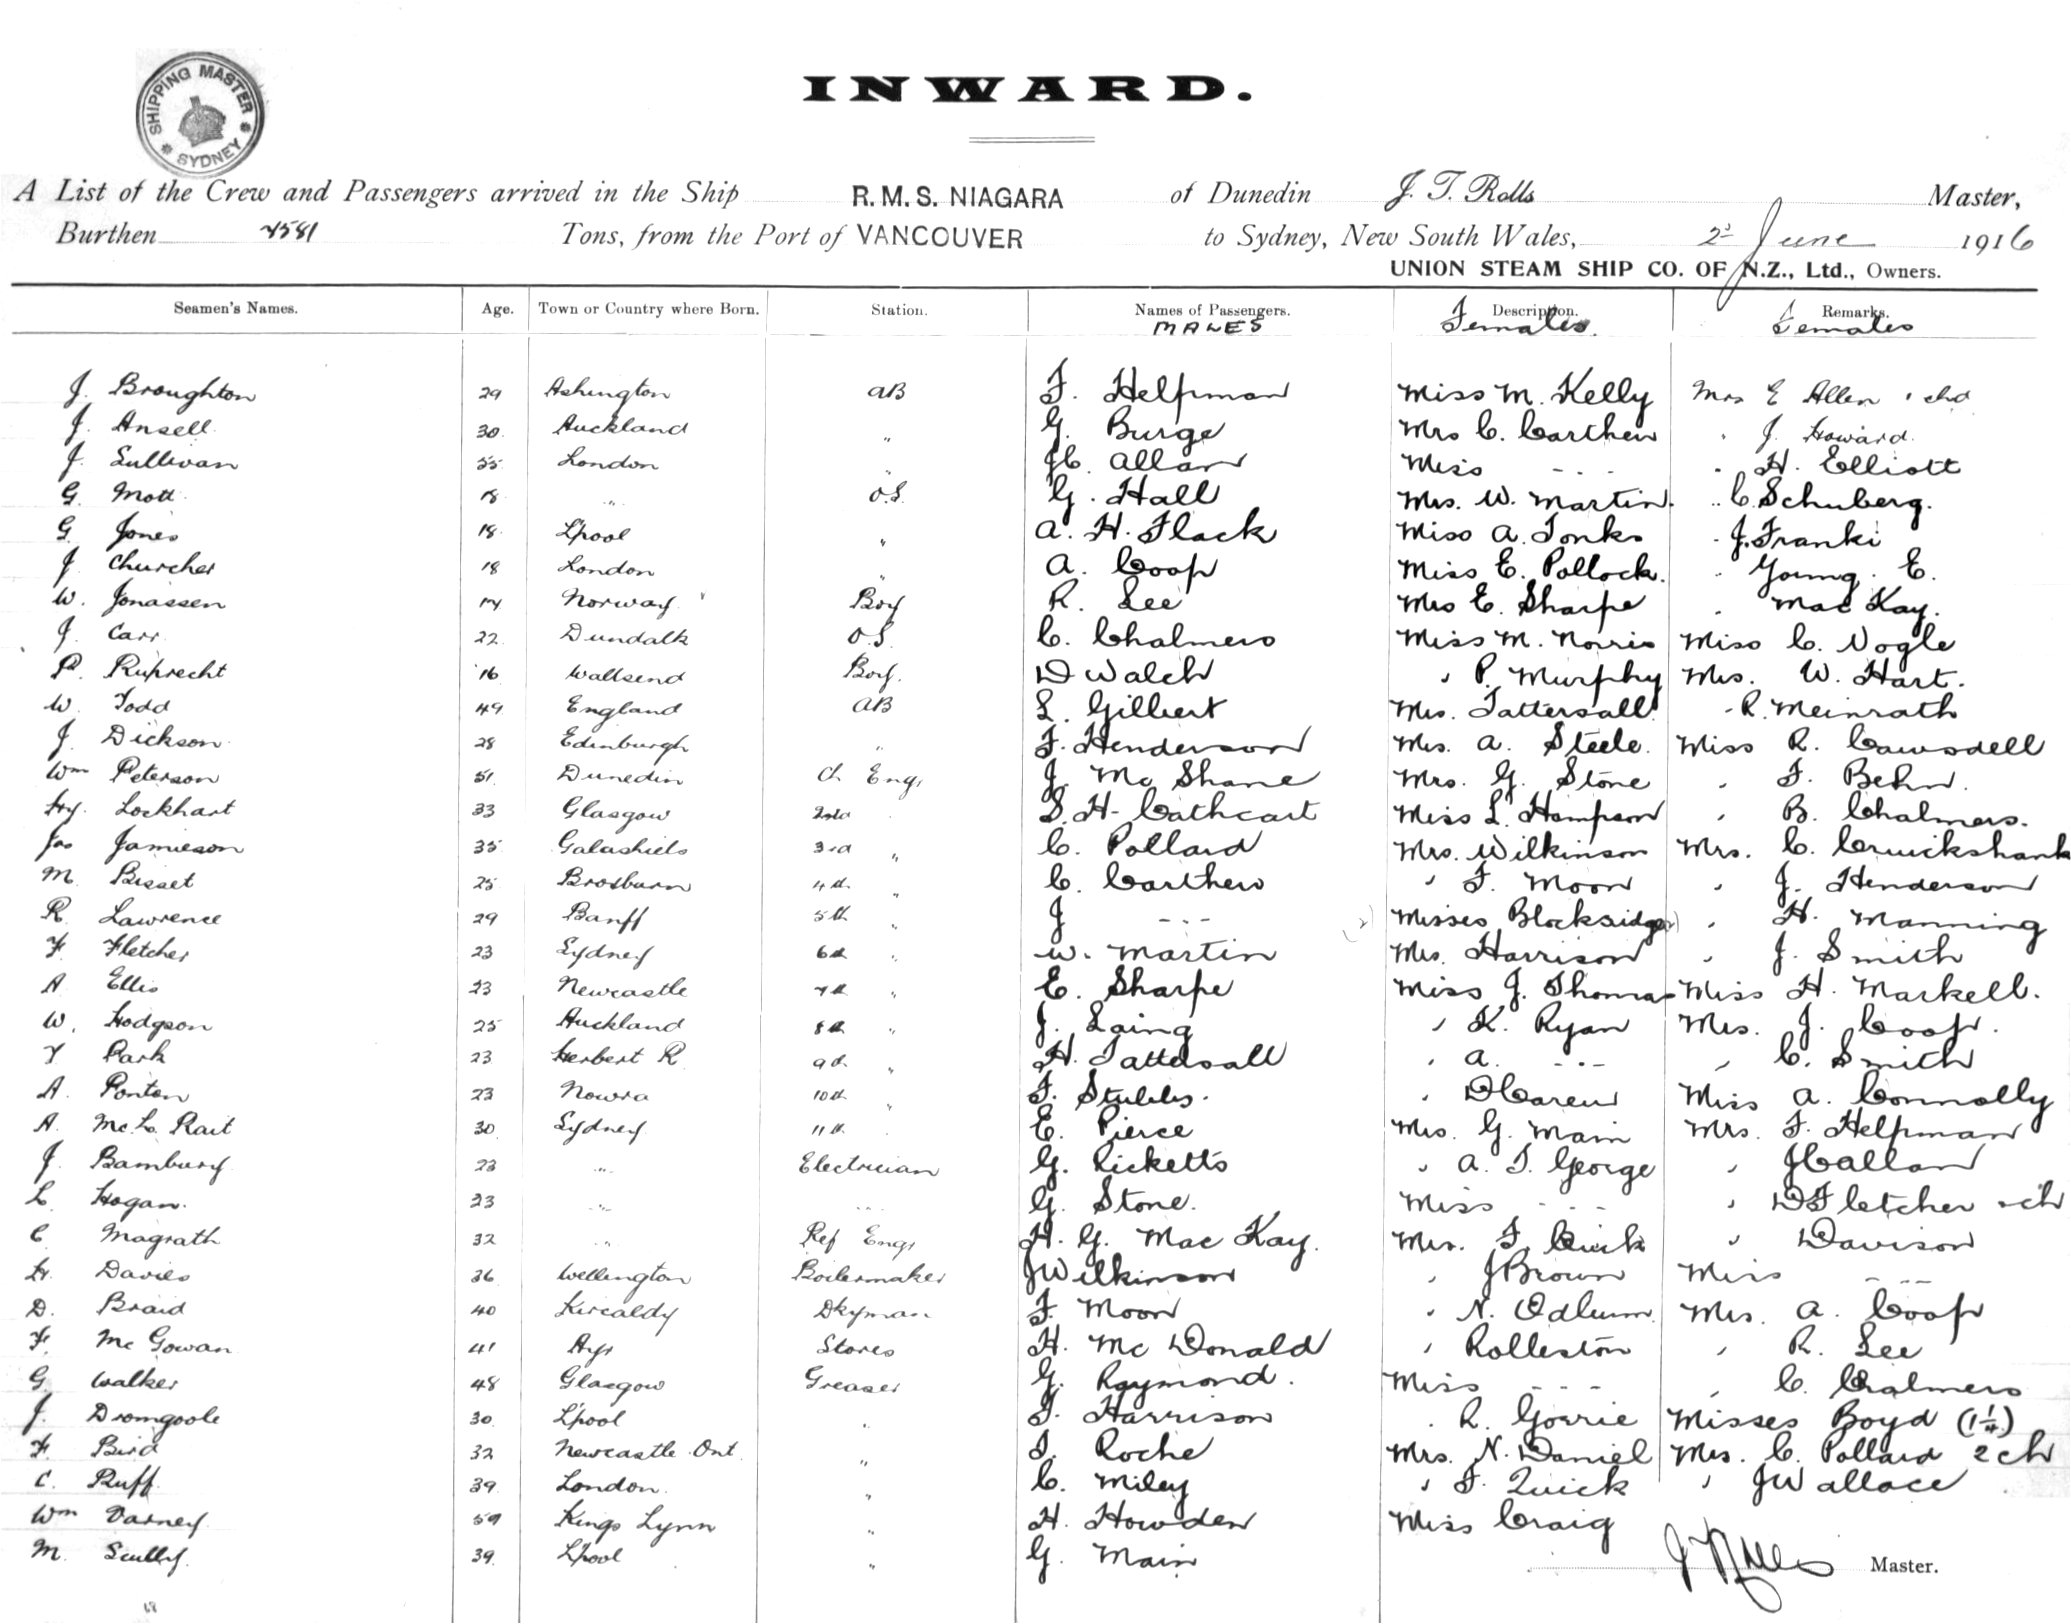 SHIPPING MASTER
SYDNEY
INWARD.
A List of the Crew and Passengers arrived in the Ship R.M.S. NIAGARA of Dunedin J. T. Rolls Master,
Burthen 7581 Tons, from the Port of VANCOUVER to Sydney, New South Wales, 2d June 1916
UNION STEAM SHIP CO. OF N.Z., Ltd., Owners.
Seamen's Names. Age. Town or Country where Born. Station. Names of Passengers. Description. Remarks.
MALES Females. Females
J. Broughton 29 Ashington AB F. Helpman Miss M. Kelly Mrs E Allen chd
J. Ansell 30 Auckland " G. Burge Mrs C. Carthew " J. Howard.
J. Sullivan 55 London " J C. Allan Miss - - - " H. Elliott
G. Mott 18 " O.S. G. Hall Mrs. W. Martin. " C. Schuberg.
G. Jones 18 L'pool " A. H. Flack Miss A. Tonks " J. Franki
J. Churcher 18 London " A. Coop Miss E. Pollock. " Young. E.
W. Jonassen 17 Norway Boy R. Lee Mrs E. Sharpe " Mac Kay.
J. Carr 22 Dundalk O.S. C. Chalmers Miss M. Norris Miss C. Vogle
P. Ruprecht 16 Wallsend Boy. D Walch " P. Murphy Mrs. W. Hart.
W. Todd 49 England AB L. Gilbert Mrs. Tattersall " R. Meinrath
J. Dickson 28 Edinburgh " F. Henderson Mrs. A. Steele. Miss R. Cawsdell
Wm Peterson 51 Dunedin Ch Engr J. Mc Shane Mrs. G. Stone " F. Behn.
Hy. Lockhart 33 Glasgow 2nd S. H. Cathcart Miss L. Hampson " B. Chalmers.
Jas Jamieson 35 Galashiels 3rd " C. Pollard Mrs. Wilkinson Mrs. C. Cruickshank
M. Bisset 25 Broxburn 4th " C. Carthew " F. Moon " J. Henderson
R. Lawrence 29 Banff 5th " J - - - (2) Misses Blocksidge " H. Manning
F. Fletcher 23 Sydney 6th " W. Martin Mrs. Harrison " J. Smith
A Ellis 23 Newcastle 7th " E. Sharpe Miss J. Thomas Miss H. Markell.
W. Hodgson 25 Auckland 8th " J. Laing " K. Ryan Mrs. J. Coop.
T Park 23 Herbert R. 9th " H. Tattersall " A. - - - " C. Smith
A. Ponton 23 Nowra 10th " F. Stubbs. " D Carew Miss A. Connolly
A. McL. Rait 30 Sydney 11th E. Pierce Mrs. G. Main Mrs. F. Helpman
J. Bambury 23 " Electrician G. Ricketts " A. T. George " J C allan
L Hogan. 23 " " G. Stone. Miss - - - " D Fletcher ch
C Magrath 32 " Ref Engr H. G. Mac Kay. Mrs. F. " Davison
H. Davies 36 Wellington Boilermaker J Wilkinson " J Brown Miss - - -
D. Braid 40 Kircaldy Dkyman F. Moon " N. Odlum Mrs. A. Coop
F. Mc Gowan 41 Ayr Stores H. Mc Donald " Rolleston " R. Lee
G. Walker 48 Glasgow Greaser G. Raymond. Miss - - - " C. Chalmers
J. Dromgoole 30 L'pool " T. Harrison " R. Gorrie Misses Boyd (1 1/4)
F. Bird 32 Newcastle Ont. " T. Roche Mrs. N. Daniel Mrs. C. Pollard 2 ch
C. Ruff 39 London " C. Miley " F. Quick " J Wallace
Wm Varney 59 Kings Lynn " H. Howden Miss Craig
M. Scully. 39 L'pool " G. Main
J T Rolls Master.